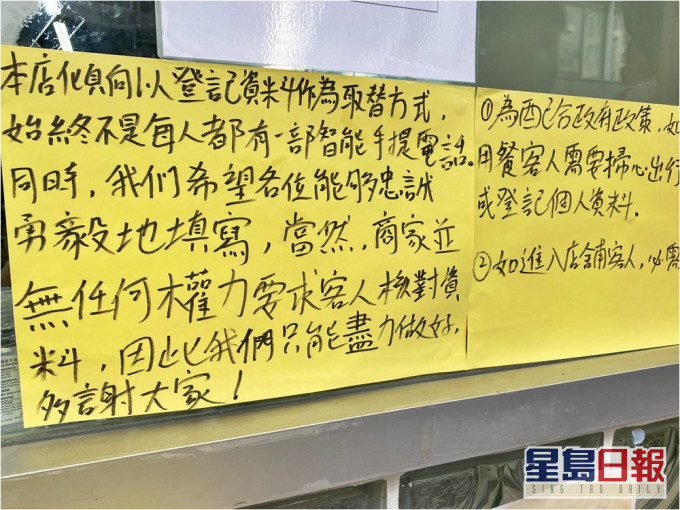 本店傾向以登記資料作為取替方式，
始終不是每人都有一部智能手提電話。
同時，我们希望各位能够忠誠
勇毅地填寫，當然，商家並
無任何權力要求客人核對資
料，因此我們只能盡力做好，
多謝大家！
①為配合政府政策，如
用餐客人需要掃心出行
或登記個人資料．
②如進入店舖客人，必需
星島日報
SING TAO DAILY